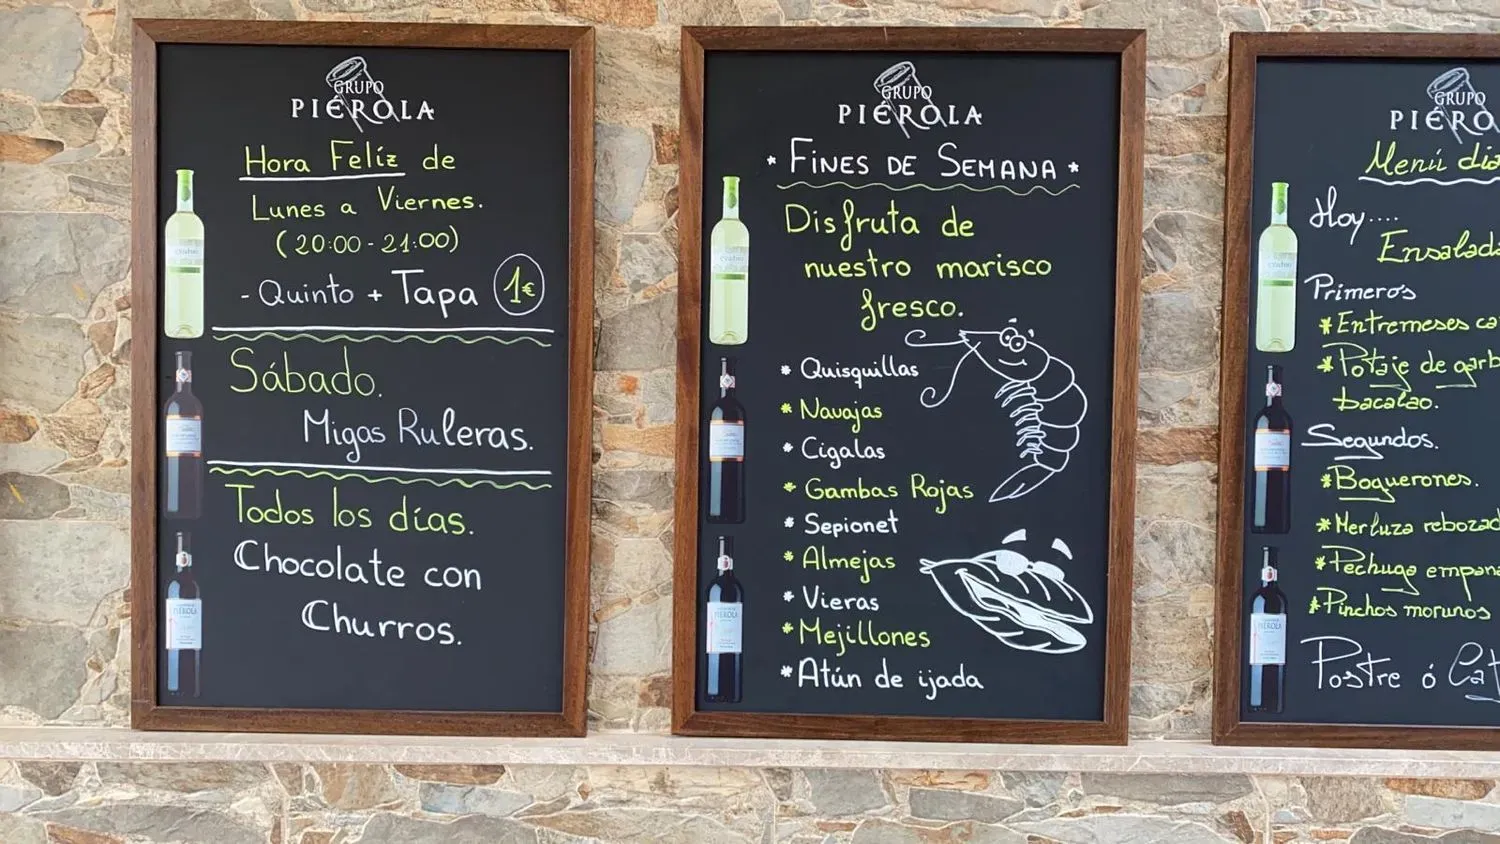 GRUPO
PIÉROLA
Hora Felíz de
Lunes a Viernes.
(20:00-21:00)
- Quinto + Tapa 1€
Sábado.
Migas Ruleras.
Todos los días.
Chocolate con
Churros.
GRUPO
PIÉROLA
* FINES DE SEMANA *
Disfruta de
nuestro marisco
fresco.
* Quisquillas
* Navajas
* Cigalas
* Gambas Rojas
* Sepionet
* Almejas
* Vieras
* Mejillones
* Atún de ijada
GRUPO
PIÉRO
Menú dia
Hoy....
Ensalada
Primeros
* Entremeses ca
* Potaje de garb
bacalao.
Segundos.
* Boquerones.
* Merluza rebozad
* Pechuga empana
* Pinchos morunos
Postre ó Caf